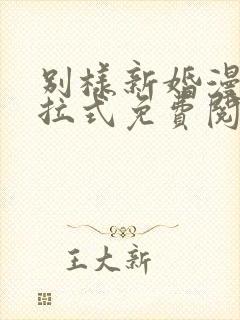 别样新婚漫
拉式免費閱
王大新